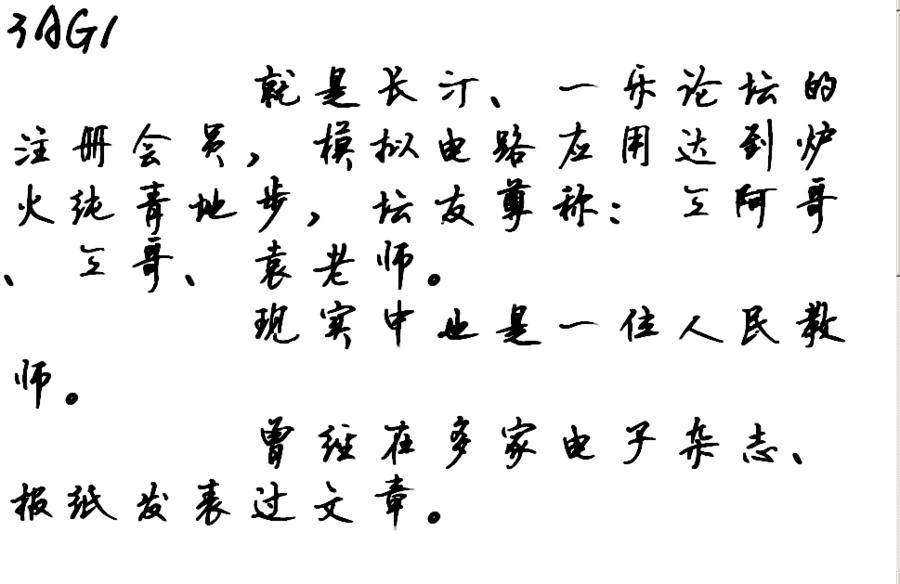 3AG1
就是长汀、一乐论坛的
注册会员，模拟电路应用达到炉
火纯青地步，坛友尊称：三阿哥
、三哥、袁老师。
现实中也是一位人民教
师。
曾经在多家电子杂志、
报纸发表过文章。